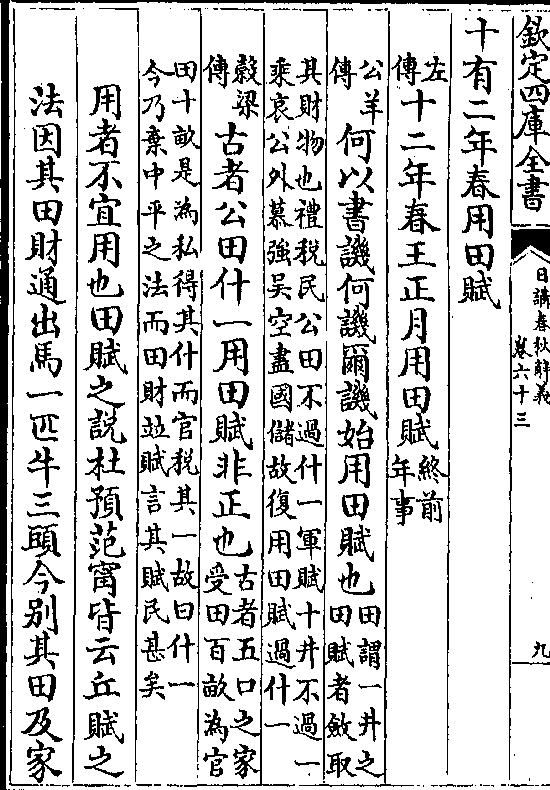 欽定四庫全書
日講春秋解義
卷六十三
九
十有二年春用田賦
左傳十二年春王正月用田賦終前年事
公羊傳何以書譏何譏爾譏始用田賦也田謂一井之
田賦者斂取
其財物也禮稅民公田不過什一軍賦十井不過一
乘哀公外慕強吳空盡國儲故復用田賦過什一
穀梁傳古者公田什一用田賦非正也古者五口之家
受田百畝為官
田十畝是為私得其什而官稅其一故曰什一
今乃棄中平之法而田財並賦言其賦民甚矣
用者不宜用也田賦之說杜預范甯皆云丘賦之
法因其田財通出馬一匹牛三頭今别其田及家